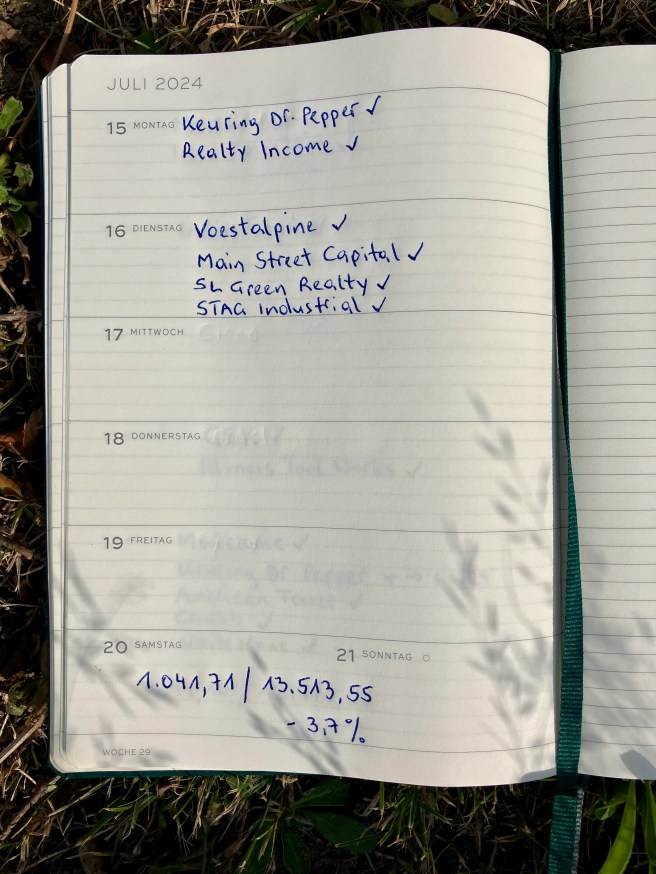 JULI 2024
15 MONTAG Keuring Dr. Pepper ✓
Realty Income ✓
16 DIENSTAG Voestalpine ✓
Main Street Capital ✓
SL Green Realty ✓
STAG Industrial ✓
17 MITTWOCH
18 DONNERSTAG
Illinois Tool Works ✓
19 FREITAG
Keuring Dr. Pepper
American Tower ✓
20 SAMSTAG
21 SONNTAG
1.041,71 / 13.513,55
- 3,7%
WOCHE 29